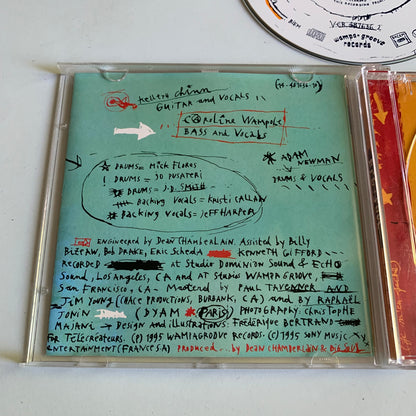 VCR 487636 2
wampa-groove
records
BIEM
(PS 487636 2)
Kellerd Chinn
GUITAR and VOCALS
Caroline Wampole
BASS and Vocals
* DRUMS = Mick Floros
! DRUMS = JO PUSATERI
DRUMS = J.D. SMITH
Backing Vocals = Kristi CALLAN
Backing Vocals = JEFF HARPER
* ADAM
NEWMAN
DRUMS & VOCALS
ENGINEERED by DEAN CHAMBERLAIN. Assisted by Billy
BIZEAW, Bob DRAKE, Eric Scheda KENNETH GIFFORD
RECORDED at Studio DOMINION Sound & ECHO
Sound, Los Angeles, CA and AT Studio WAMPA GROOVE,
SAN FRANCISCO, CA - Mastered by PAUL TAVENNER AND
JIM YOUNG (CHACE PRODUCTIONS, BURBANK, CA) and by RAPHAËL
JONIN (DYAM * PARIS) PHOTOGRAPHY: CHRISTOPHE
MAJANI → Design and illustrations: Frédérique BERTRAND
FOR Télécréateurs. (P) 1995 WAMPAGROOVE RECORDS. (C) 1995 SONY MUSIC
ENTERTAINMENT (FRANCE SA) PRODUCED ... by DEAN CHAMBERLAIN &